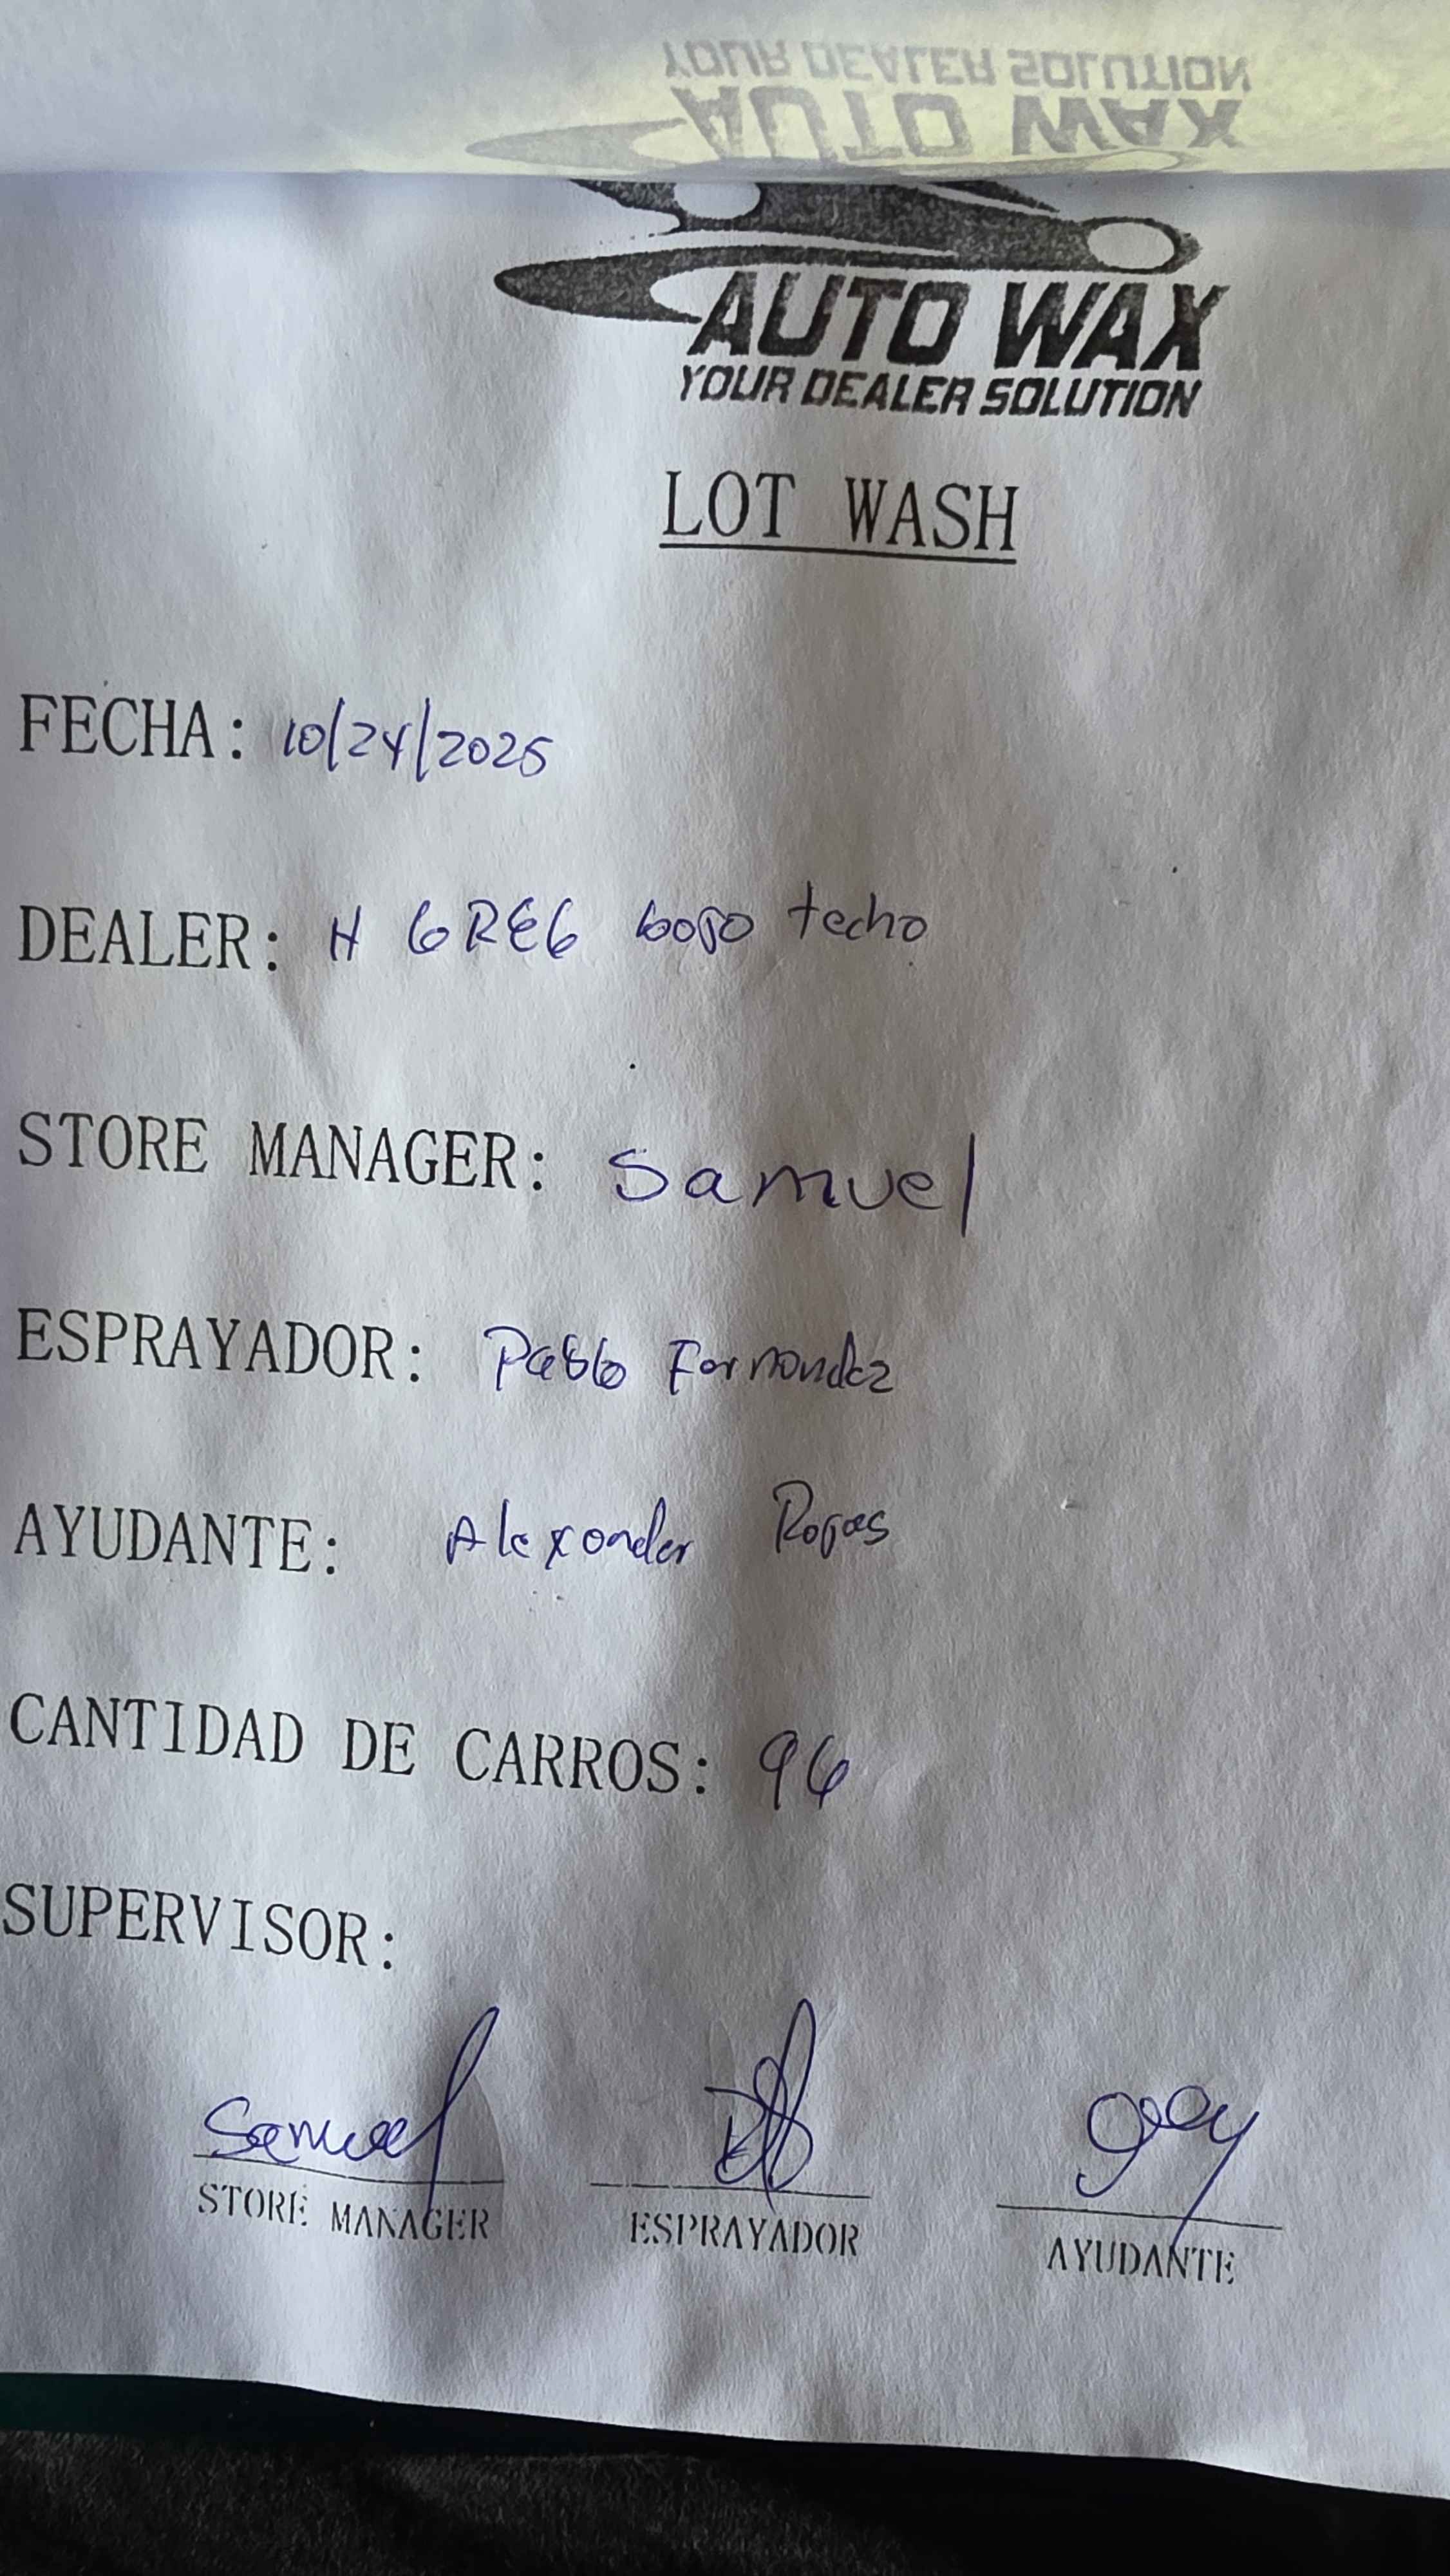 YOUR DEALER SOLUTION
AUTO WAX
AUTO WAX
YOUR DEALER SOLUTION
LOT WASH
FECHA: 10/24/2025
DEALER: H GREG bajo techo
STORE MANAGER: Samuel
ESPRAYADOR: Pablo Fernandez
AYUDANTE: Alexander Rojas
CANTIDAD DE CARROS: 96
SUPERVISOR:
Samuel
STORE MANAGER ESPRAYADOR AYUDANTE